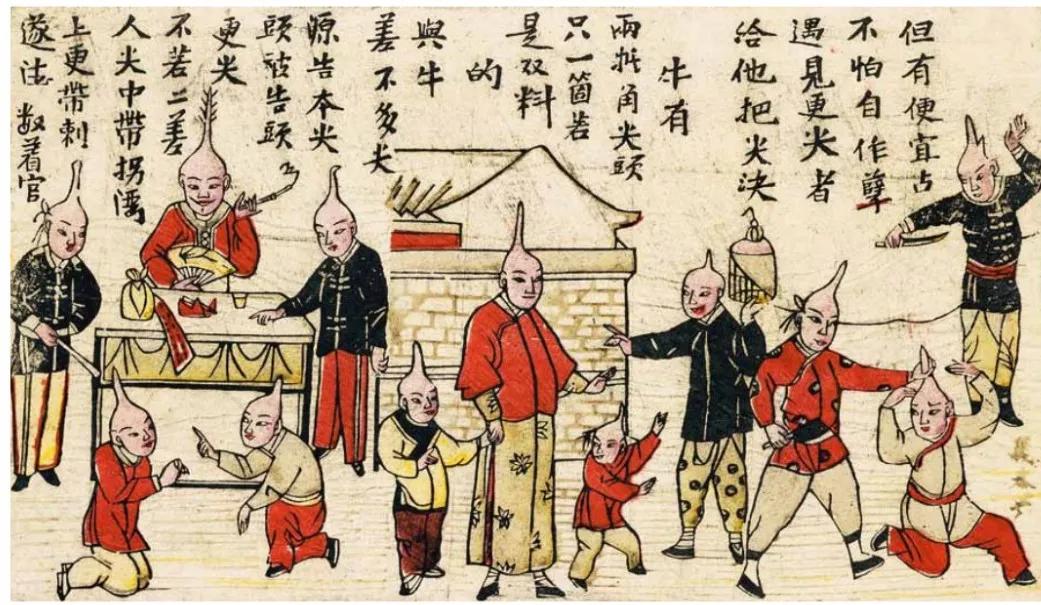 但有便宜占
不怕自作孽
遇見更尖者
給他把尖決
牛有
兩抵角尖頭
只一箇若
是双料
的
與牛
差不多尖
源告本尖
頭被告頭
更尖
不若二差
人尖中帶拐
上更帶刺
着官